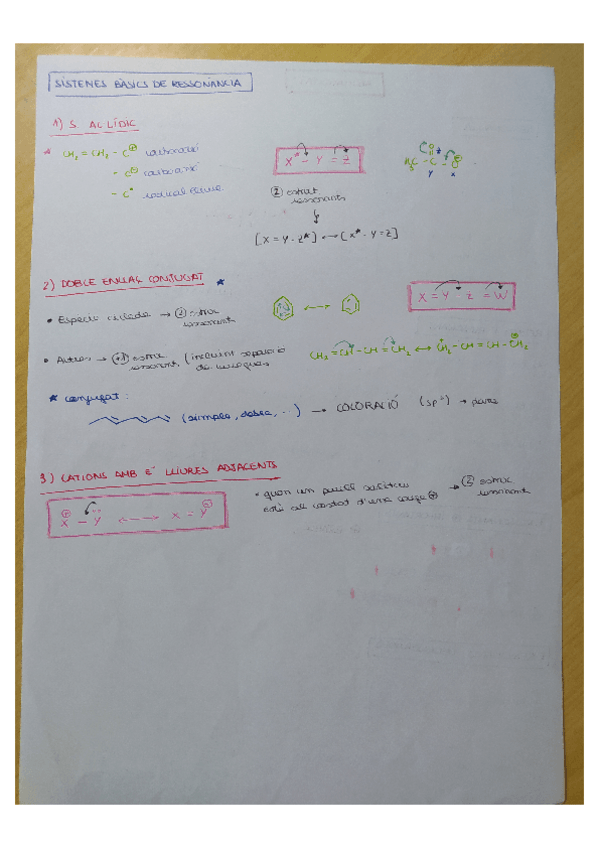 SISTEMES BÀSICS DE RESSONÀNCIA
1) S. AL·LÍDIC
CH₂ = CH₂ - C⊕ carbocatió
- C⊖ carbanió
- C• radical lliure
X* - Y = Z
② estruct. ressonants
[X = Y - Z*] ↔ [X* - Y = Z]
H₃C - C - O⊖
O
Y X
2) DOBLE ENLLAÇ CONJUGAT *
• Espècie ciclada → ② estruc. ressonant
X = Y - Z = W
• Altres → +1 estruc. ressonant (incloent separació de càrregues)
CH₂ = CH - CH = CH₂ ↔ CH₂ - CH = CH - CH₂
* conjugat:
(simple, doble, ...) → COLORACIÓ (sp²) →
3) CATIONS AMB E⁻ LLIURES ADJACENTS
X⊕ - Ÿ ↔ X = Y⊕
• quan un parell solitari està al costat d'una càrrega ⊕ → ② estruc. ressonant